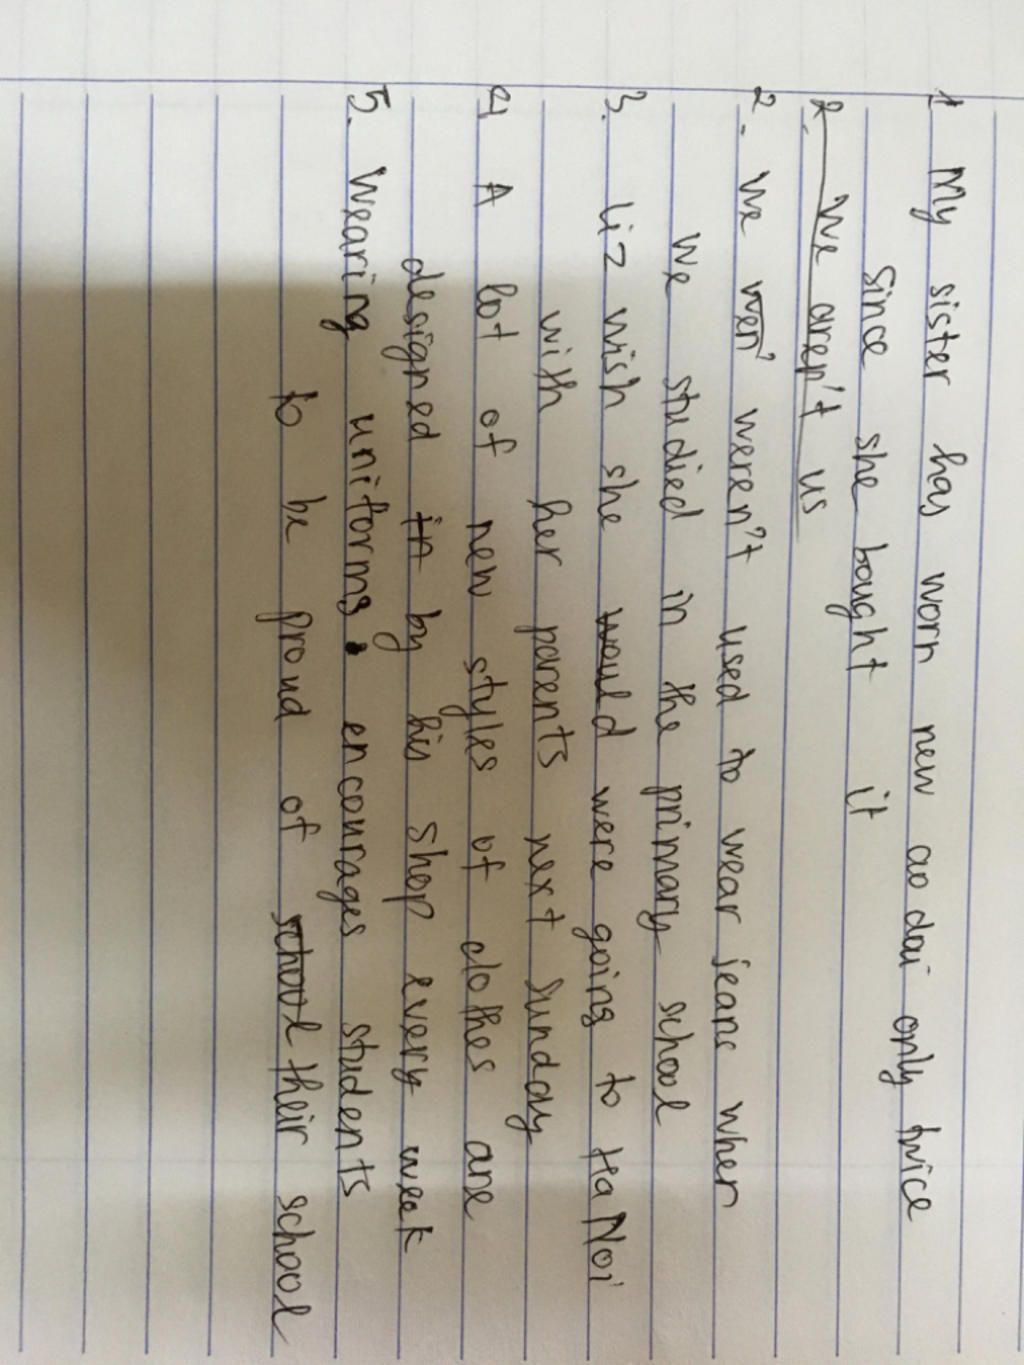 1 My sister has worn new ao dai only twice
since she bought it
2. We aren't us
2. We wen' weren't used to wear jeans when
we studied in the primary school
3. Liz wish she would were going to Ha Noi
with her parents next Sunday
4 A lot of new styles of clothes are
designed in by his shop every week
5. Wearing uniforms encourages students
to be proud of school their school